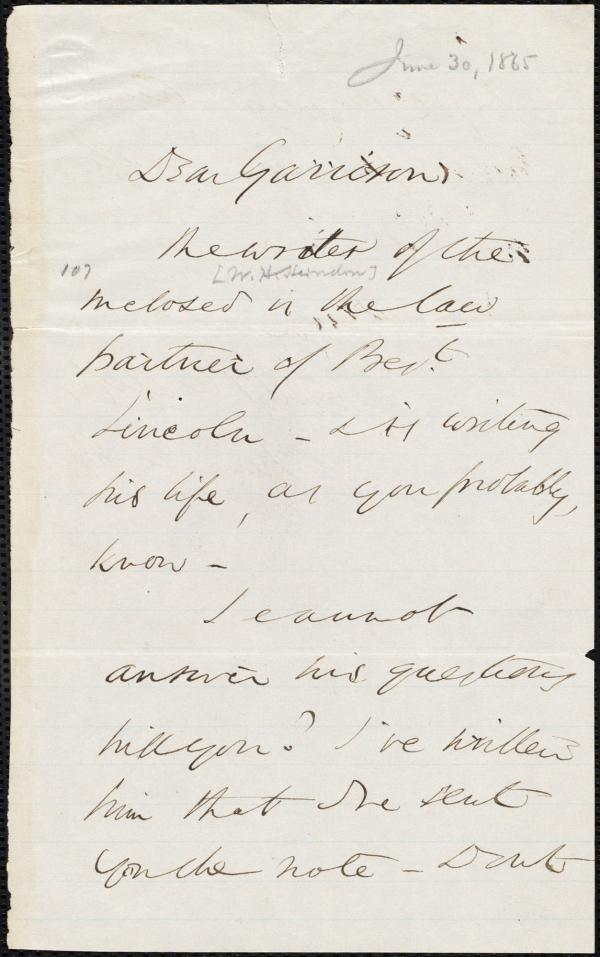 June 30, 1865
Dear Garrison,
The writer of the
107 [W. H. Herndon]
enclosed is the law
partner of Prest.
Lincoln - & is writing
his life, as you probably,
know -
I cannot
answer his questions
will you? I've written
him that I've sent
you the note - Dont